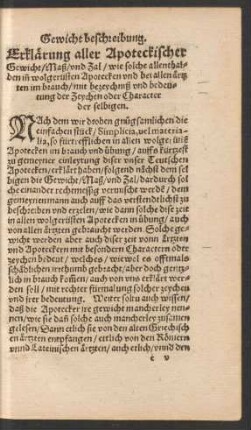 Gewicht beschreibung.
Erklärung aller Apoteckischer
Gewicht/ Maß/ vnd Zal/ wie solche allenthal-
den in wolgerüsten Apotecken vnd bei allen ärtz
ten im brauch/ mit bezeychnuß vnd bedeu-
tung der Zeychen oder Character
der selbigen.
NAch dem wir droben gnůgsamlichen die
einfachen stuck/ Simplicia, vel materia-
lia, so fürtrefflichen in allen wolgerüste
Apotecken im brauch vnd übung/ auffs kürtzest
zu gemeyner einleytung diser vnser Teutschen
Apotecken/ erklärt haben/ folgend nächst dem sel
bigen die Gewicht/ Maß/ vnd Zal/ dardurch solche
einander rechtmessig vermischt werde/ dem
gemeynen mann auch auff das verstendtlichst zu
beschreiben vnd erzelen/ wie dann solche diser zeit
in allen wolgerüsten Apotecken in übung/ auch
von allen ärtzten gebraucht werden. Solche ge-
wicht werden aber auch diser zeit von Ärtzten
vnd Apotecken mit besondern Characteren oder
zeychen bedeut/ welches/ wiewol es offtmals
schädlichen irrthumb gebracht/ aber doch gentz-
lich in brauch kommen/ auch von vns erklärt wer
den soll/ mit rechter fürmalung solcher zeychen
vnd irer bedeutung. Weiter soltu auch wissen/
daß die Apotecker ire gewicht mancherley nen-
nen/ wie sie daß solche auch mancherley zusamen
gelesen/ Dann etlich sie von den alten Griechisch
en ärtzten empfangen/ etlich von den Römern
vnnd Lateinischen ärtzten/ auch etlich/ vnnd den
c v